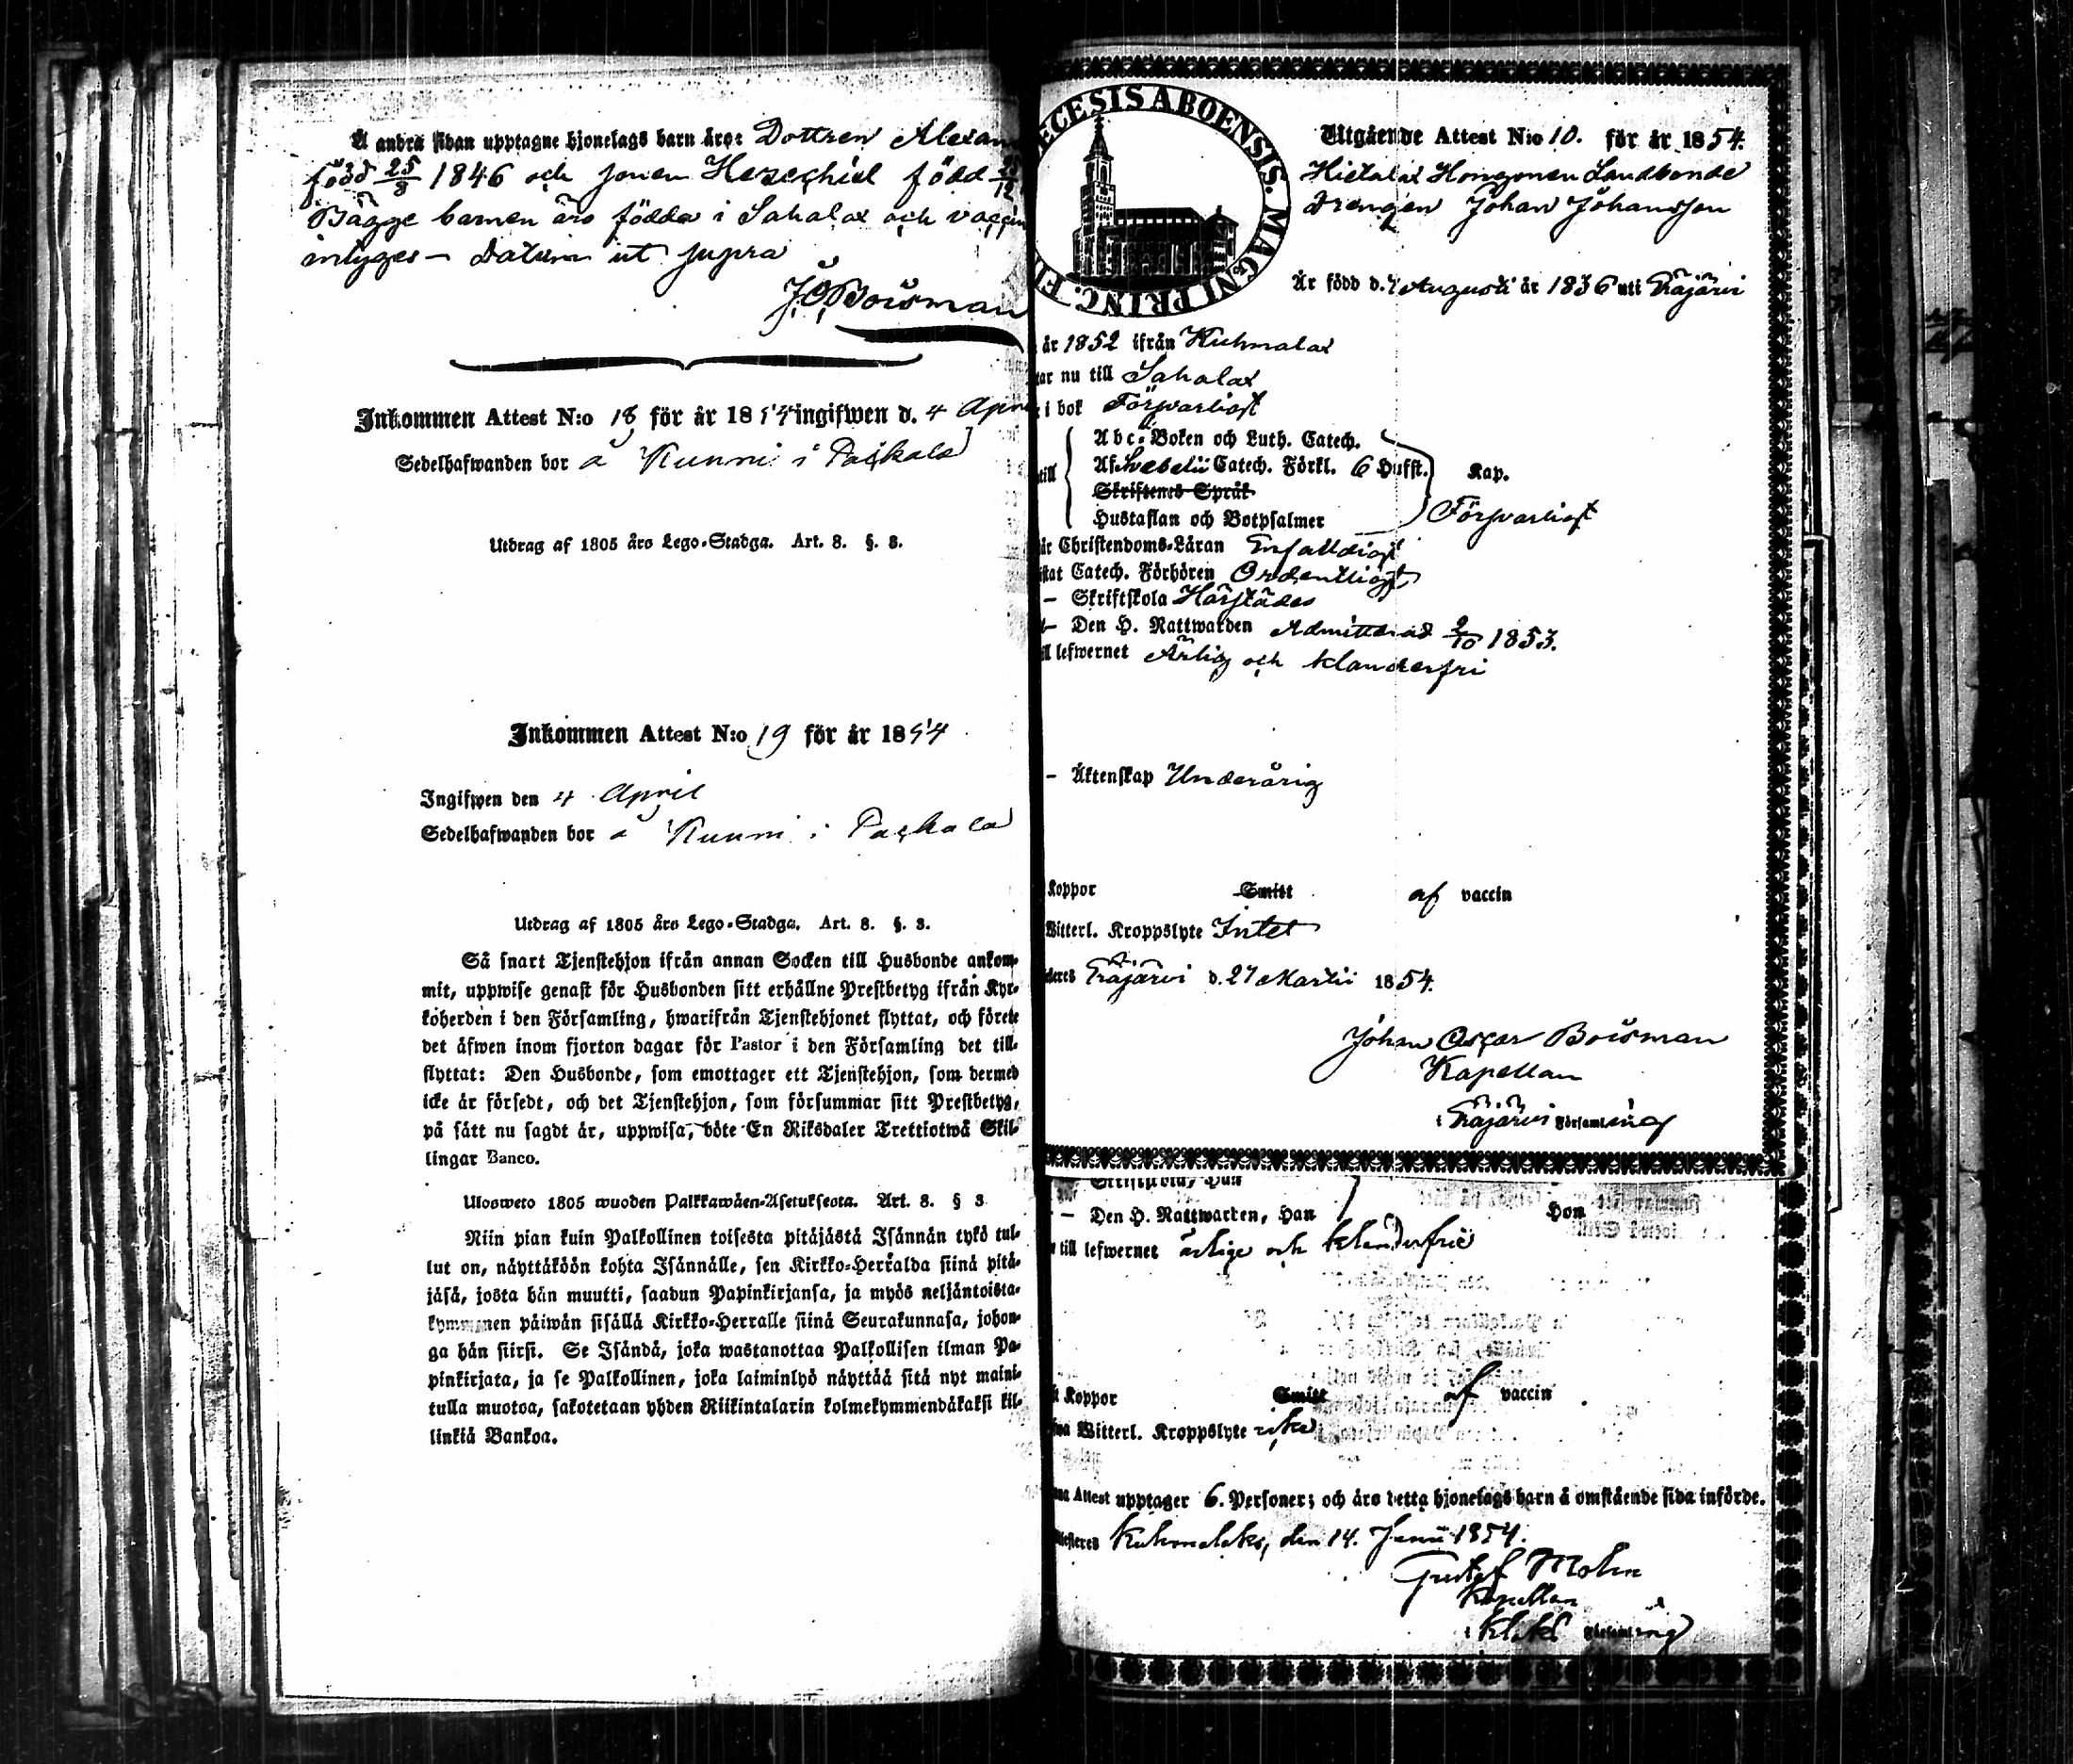 Å andra sidan upptagne hjonelags barn äro: Dottren Alexan
född 25/8 1846 och sonen Hesechiel född
Bägge barnen äro födda i Sahalax och vaccin
intyges – datum ut supra
J. O. Boisman
Inkommen Attest N:o 18 för år 1854 ingifwen d. 4 Apri
Sedelhafwanden bor å Kunni i Paskala
Utdrag af 1805 års Lego-Stadga. Art. 8. §. 3.
Inkommen Attest N:o 19 för år 1854
Ingifwen den 4 April
Sedelhafwanden bor å Kunni i Paskala
Utdrag af 1805 års Lego-Stadga. Art. 8. §. 3.
Så snart Tjenstehjon ifrån annan Socken till Husbonde ankom-
mit, uppwise genast för Husbonden sitt erhållne Prestbetyg ifrån Kyr-
koherden i den Församling, hwarifrån Tjenstehjonet flyttat, och förete
det äfwen inom fjorton dagar för Pastor i den Församling det till-
flyttat: Den Husbonde, som emottager ett Tjenstehjon, som dermed
icke är försedt, och det Tjenstehjon, som försummar sitt Prestbetyg,
på sätt nu sagdt är, uppwisa, böte En Riksdaler Trettiotwå Skil-
lingar Banco.
Ulosweto 1805 wuoden Palkkawäen-Asetuksesta. Art. 8. § 3
Niin pian kuin Palkollinen toisesta pitäjästä Isännän tykö tul-
lut on, näyttäköön kohta Isännälle, sen Kirkko-Herralda siinä pitä-
jäsä, josta hän muutti, saadun Papinkirjansa, ja myös neljäntoista-
kymmenen päiwän sisällä Kirkko-Herralle siinä Seurakunnasa, johon-
ga hän siirsi. Se Isändä, joka wastanottaa Palkollisen ilman Pa-
pinkirjata, ja se Palkollinen, joka laiminlyö näyttää sitä nyt maini-
tulla muotoa, sakotetaan yhden Riikintalarin kolmekymmendäkaksi kil-
linkiä Bankoa.
ECESIS ABOENSIS. MAGNI PRINC. FI
Utgående Attest N:o 10. för år 1854.
Hietalax Hongonen Landbonde
drengen Johan Johansson
Är född d. 7 Augusti år 1836 uti Eräjärvi
år 1852 ifrån Kuhmalax
tar nu till Sahalax
i bok Försvarligt
till
Abc-Boken och Luth. Catech.
Af Svebelii Catech. Förkl. 6 Hufst. Kap.
Skriftenes Språk
Hustaflan och Botpsalmer Försvarligt
är Christendoms-Läran Enfalldigt
istat Catech. Förhören Ordentligt
– Skriftskola Härstädes
– Den H. Nattwarden Admitterad 2/10 1853.
ill lefwernet Ärlig och klanderfri
– Äktenskap Underårig
Koppor Smitt af vaccin
Witterl. Kroppslyte Intet
Eräjärvi d. 27 Martii 1854.
Johan Oscar Boisman
Kapellan
i Eräjärvi Församling
Skriftskola, Han
– Den H. Nattwarden, Han Hon
till lefwernet ärlige och klanderfrie
Koppor Smitt af vaccin
Witterl. Kroppslyte icke
Attest upptager 6. Personer; och äro detta hjonelags barn å omstående sida införde.
Kuhmalaks, den 14. Junii 1854.
Gustaf Molin
Kapellan
i Klaks Församling